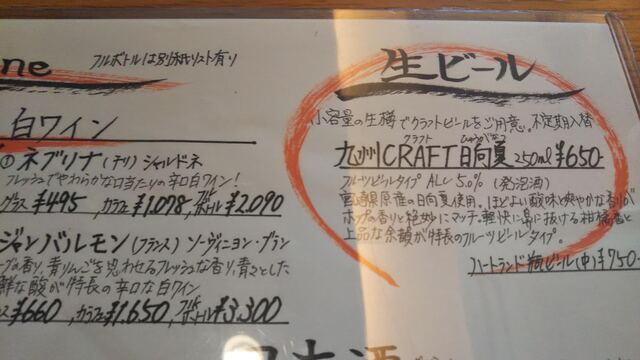 ne
フルボトルは別紙リスト有り
白ワイン
① ネブリナ (チリ) シャルドネ
フレッシュでやわらかな口当たりの辛口白ワイン!
グラス ¥495, カラフェ ¥1,098, フルボトル ¥2,090
ジャンバルモン (フランス) ソーヴィニヨン・ブラン
の香り、青りんごを思わせるフレッシュな香り、青々とした
鮮な酸が特長の辛口な白ワイン
¥660, カラフェ ¥1,650, フルボトル ¥3,300
生ビール
小容量の生樽でクラフトビールをご用意。不定期入替
クラフト ひゅうがなつ
九州CRAFT日向夏 250ml ¥650-
フルーツビールタイプ ALC 5.0% (発泡酒)
宮崎県原産の日向夏使用。ほどよい酸味と爽やかな香りが
ホップの香りと絶妙にマッチ。軽快に鼻に抜ける柑橘香と
上品な余韻が特長のフルーツビールタイプ。
ハートランド瓶ビール(中) ¥750-
日本酒